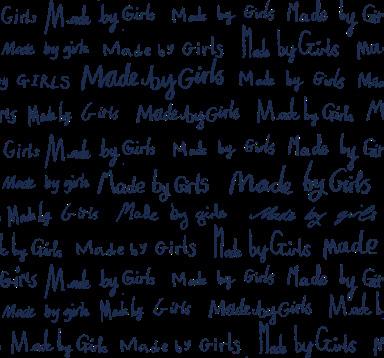 Girls Made by Girls Made by Girls Made by Gir
Made by girls Made by Girls Made by Girls Ma
by GIRLS Made by Girls Made by Girls Made
rls Made by Girls Made by Girls Made by Girls M
Girls Made by Girls Made by Girls Made by Gir
Made by girls Made by Girls Made by Girls
Made by Girls Made by girls Made by girls
e by Girls Made by Girls Made by Girls Made
Girls Made by Girls Made by Girls Made by Gir
Made by girls Made by Girls Made by Girls Made b
Made by Girls Made by Girls Made by Girls